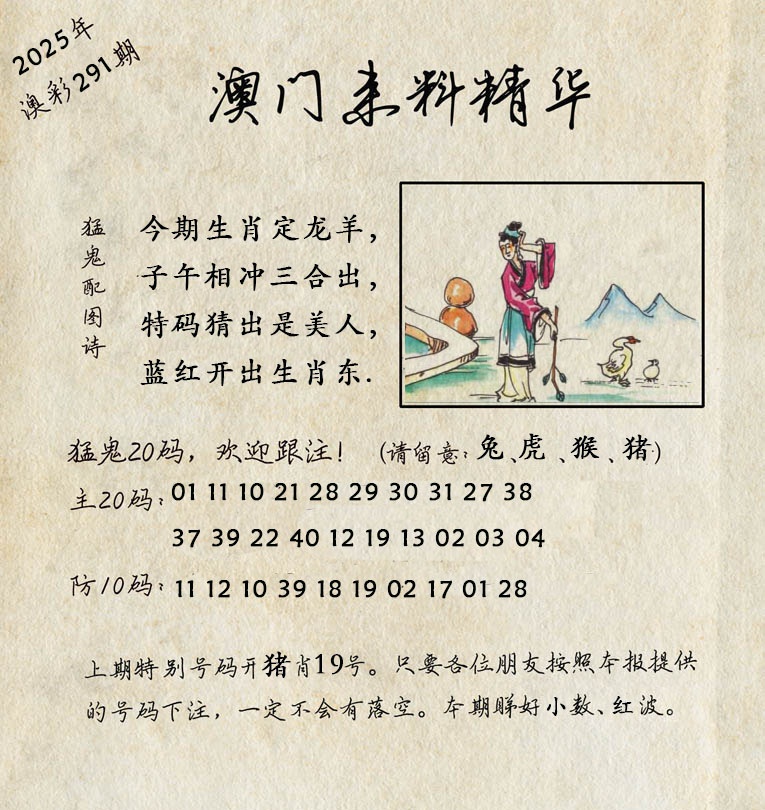 2025年
澳彩291期
澳门来料精华
猛鬼配图诗
今期生肖定龙羊，
子午相冲三合出，
特码猜出是美人，
蓝红开出生肖东.
猛鬼20码，欢迎跟注！（请留意：兔、虎、猴、猪）
主20码：01 11 10 21 28 29 30 31 27 38
37 39 22 40 12 19 13 02 03 04
防10码：11 12 10 39 18 19 02 17 01 28
上期特别号码开猪肖19号。只要各位朋友按照本报提供
的号码下注，一定不会有落空。本期睇好小数、红波。